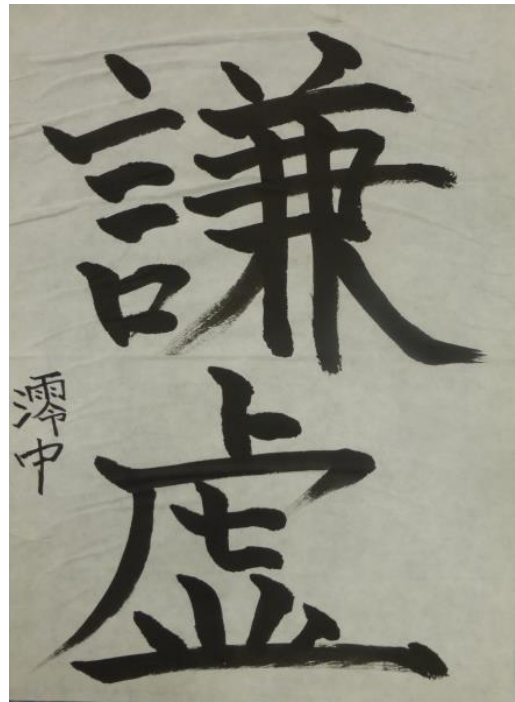 謙虚
澪中